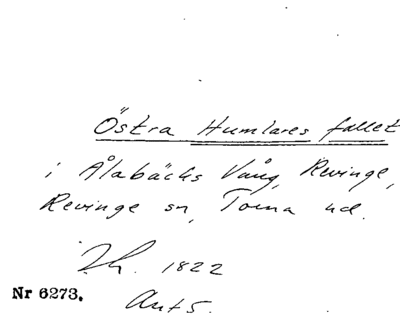 Östra Humlares fallet
i Ålabäcks Vång, Revinge,
Revinge sn, Torna hd.
Lh. 1822
Nr 6273.
Ant 5.